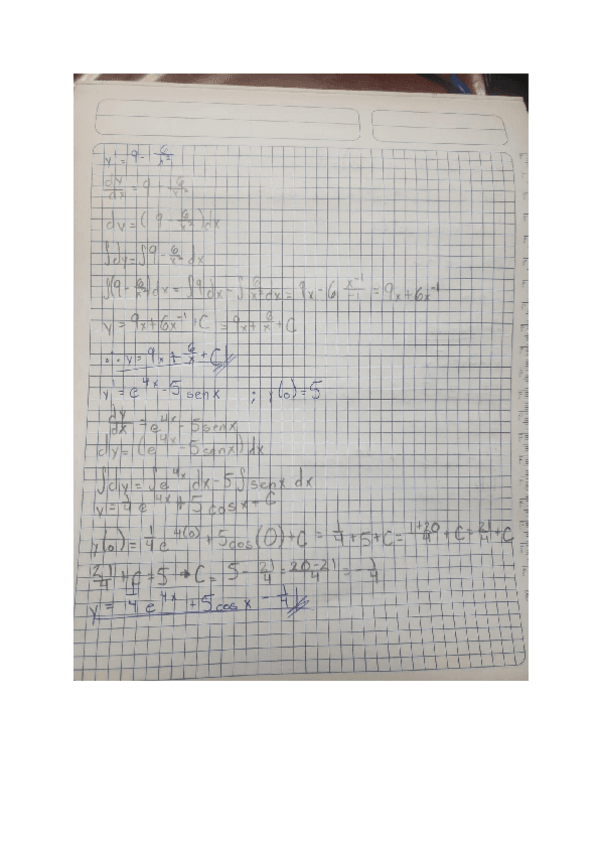 y' = 9 - 6/x²
dy/dx = 9 - 6/x²
dy = (9 - 6/x²)dx
∫dy = ∫9 - 6/x² dx
∫(9 - 6/x²)dx = ∫9dx - ∫6/x² dx = 9x - 6 x⁻¹/-1 = 9x + 6x⁻¹
y = 9x + 6x⁻¹ + C = 9x + 6/x + C
∴ y = 9x + 6/x + C
y' = e^4x - 5 senx ; y(0) = 5
dy/dx = e^4x - 5senx
dy = (e^4x - 5senx)dx
∫dy = ∫e^4x dx - 5∫senx dx
y = 1/4 e^4x + 5cosx + C
y(0) = 1/4 e^4(0) + 5cos(0) + C = 1/4 + 5 + C = 1+20/4 + C = 21/4 + C
21/4 + C = 5 → C = 5 - 21/4 = 20-21/4 = -1/4
y = 1/4 e^4x + 5cosx - 1/4